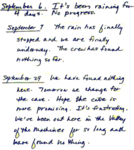 September 6. It's been raining for
4 days. No progress.
September 7 The rain has finally
stopped and we are finally
underway. The crew has found
nothing so far.
September 28 We have found nothing
here. Tomorrow we change for
the cave. Hope the cave is
more promising. It's frustrating.
We've been out here in the valley
of the Machines for so long and
have found no thing.